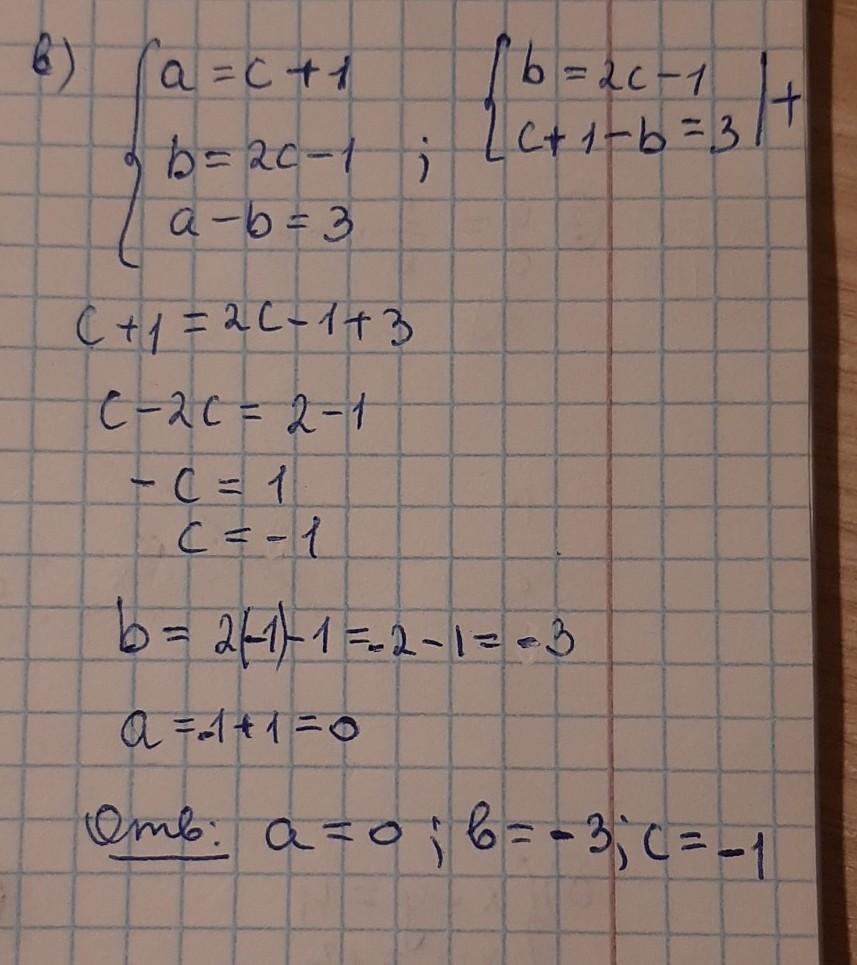 в) { a = c + 1 ; { b = 2c - 1 | +
b = 2c - 1 c + 1 - b = 3
a - b = 3
c + 1 = 2c - 1 + 3
c - 2c = 2 - 1
- c = 1
c = - 1
b = 2(-1) - 1 = -2 - 1 = -3
a = -1 + 1 = 0
Отв: a = 0 ; в = -3; c = -1